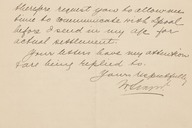 therefore request you to allow me
time to communicate with Lpool
before I send in my a/c for
actual settlement.
Your letters have my attention
& are being replied to.
Yours respectfully